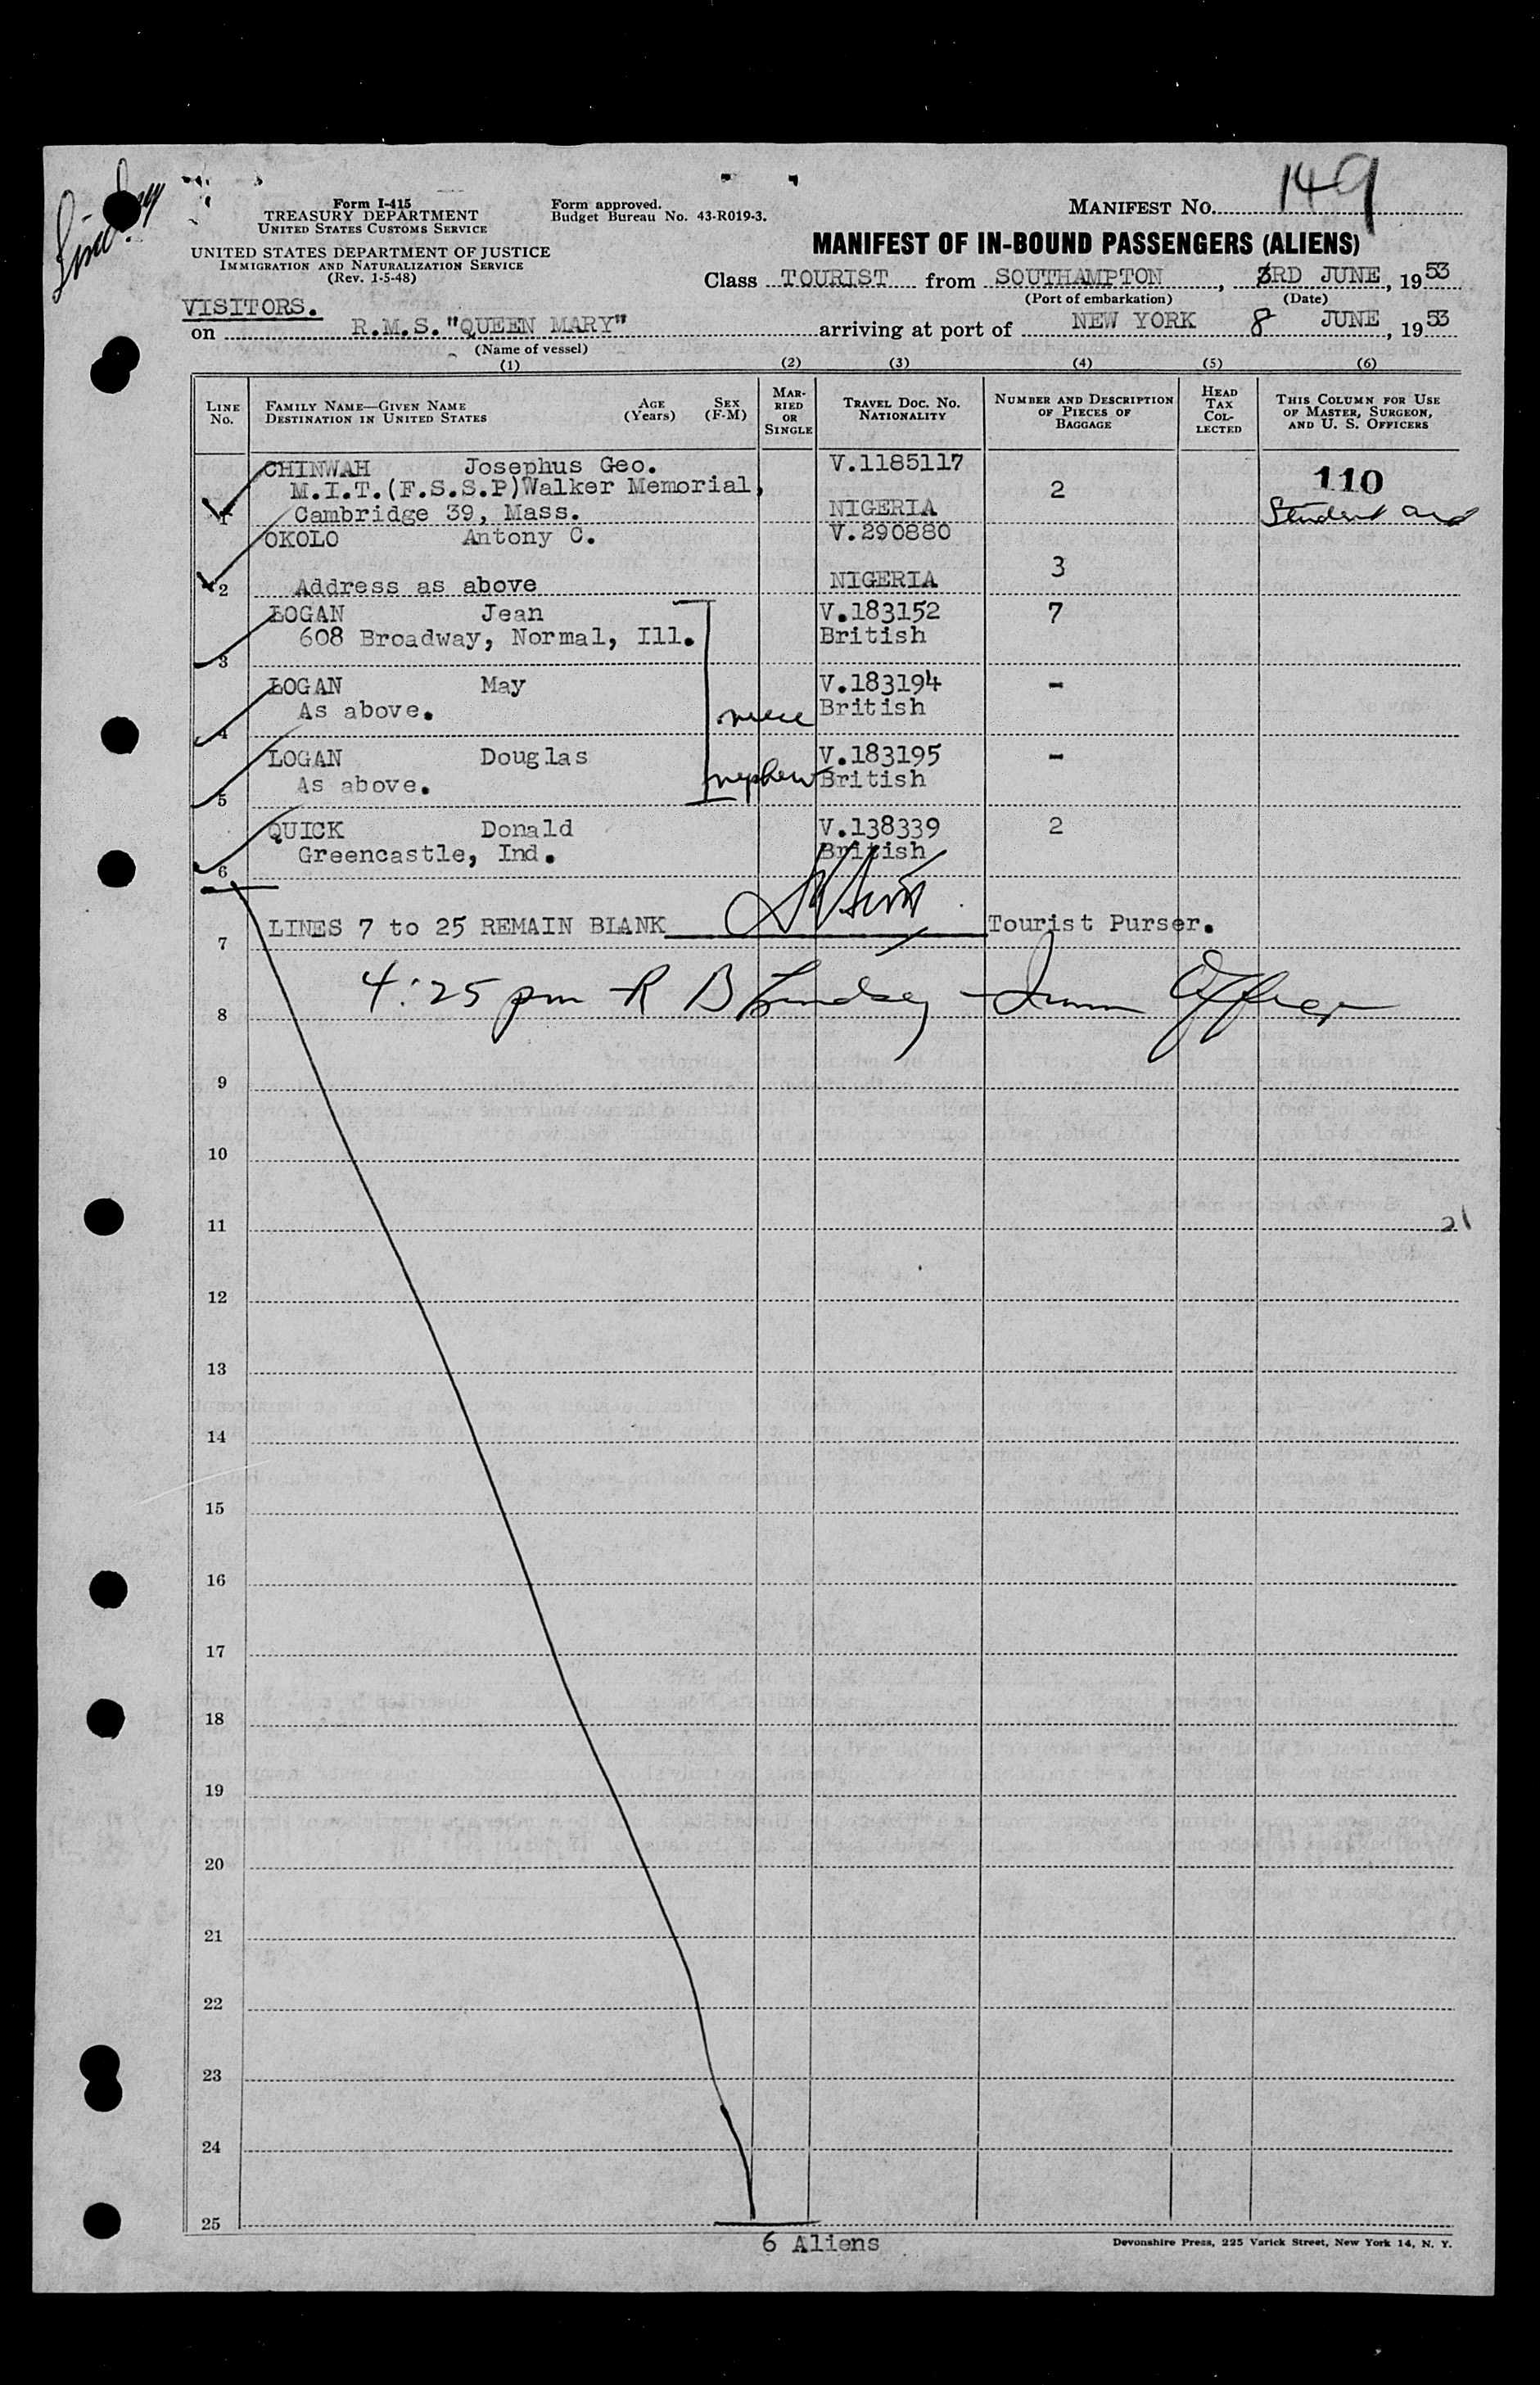 149
Form I-415
TREASURY DEPARTMENT
UNITED STATES CUSTOMS SERVICE
Form approved.
Budget Bureau No. 43-R019-3.
MANIFEST NO.
UNITED STATES DEPARTMENT OF JUSTICE
IMMIGRATION AND NATURALIZATION SERVICE
(Rev. 1-5-48)
MANIFEST OF IN-BOUND PASSENGERS (ALIENS)
Class TOURIST from SOUTHAMPTON, 3RD JUNE, 1953
(Port of embarkation) (Date)
VISITORS.
on R.M.S."QUEEN MARY" arriving at port of NEW YORK 8 JUNE, 1953
(Name of vessel)
(1) (2) (3) (4) (5) (6)
LINE No. FAMILY NAME—GIVEN NAME DESTINATION IN UNITED STATES AGE (Years) SEX (F-M) MARRIED OR SINGLE TRAVEL DOC. NO. NATIONALITY NUMBER AND DESCRIPTION OF PIECES OF BAGGAGE HEAD TAX COLLECTED THIS COLUMN FOR USE OF MASTER, SURGEON, AND U. S. OFFICERS
CHINWAH Josephus Geo. V.1185117
M.I.T.(F.S.S.P)Walker Memorial, 2 110
1 Cambridge 39, Mass. NIGERIA Student and
OKOLO Antony C. V.290880
3
2 Address as above NIGERIA
LOGAN Jean V.183152 7
608 Broadway, Normal, Ill. British
3
LOGAN May V.183194 -
As above. niece British
4
LOGAN Douglas V.183195 -
As above. nephew British
5
QUICK Donald V.138339 2
Greencastle, Ind. British
6
LINES 7 to 25 REMAIN BLANK Tourist Purser.
7
4:25 pm R B Lindsey Imm Officer
8
9
10
11
12
13
14
15
16
17
18
19
20
21
22
23
24
25
6 Aliens
Devonshire Press, 225 Varick Street, New York 14, N. Y.